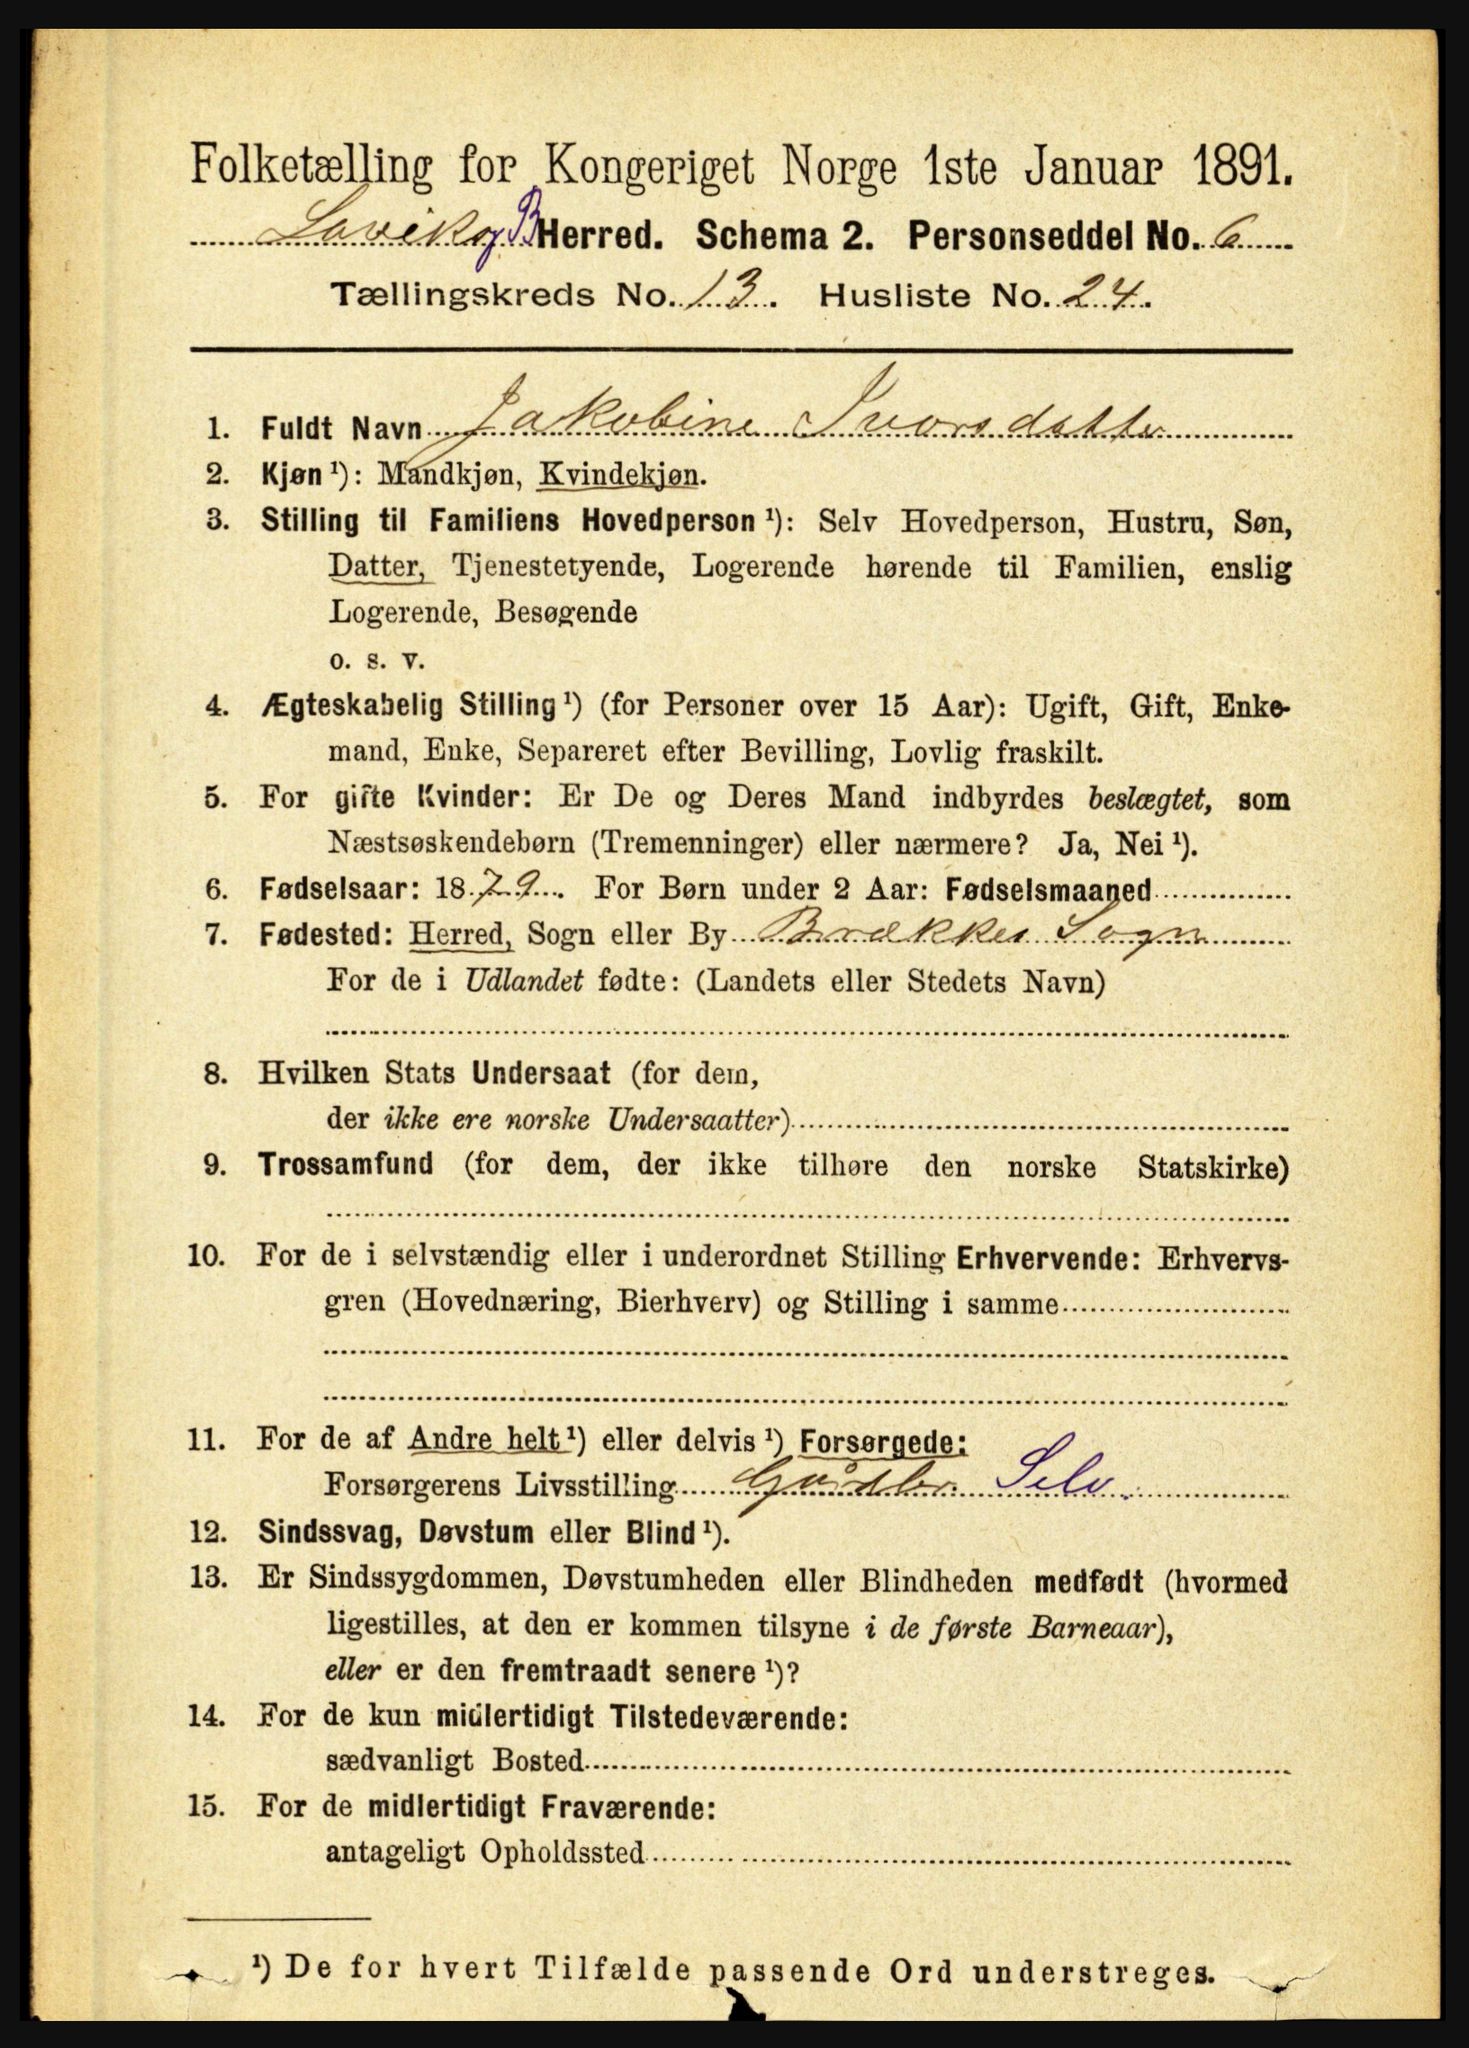 Folketælling for Kongeriget Norge 1ste Januar 1891.
Lavik og B Herred. Schema 2. Personseddel No. 6
Tællingskreds No. 13. Husliste No. 24.
1. Fuldt Navn Jakobine Ivarsdatter
2. Kjøn ¹): Mandkjøn, Kvindekjøn.
3. Stilling til Familiens Hovedperson ¹): Selv Hovedperson, Hustru, Søn,
Datter, Tjenestetyende, Logerende hørende til Familien, enslig
Logerende, Besøgende
o. s. v.
4. Ægteskabelig Stilling ¹) (for Personer over 15 Aar): Ugift, Gift, Enke-
mand, Enke, Separeret efter Bevilling, Lovlig fraskilt.
5. For gifte Kvinder: Er De og Deres Mand indbyrdes beslægtet, som
Næstsøskendebørn (Tremenninger) eller nærmere? Ja, Nei ¹).
6. Fødselsaar: 1879. For Børn under 2 Aar: Fødselsmaaned
7. Fødested: Herred, Sogn eller By Brækkes Sogn
For de i Udlandet fødte: (Landets eller Stedets Navn)
8. Hvilken Stats Undersaat (for dem,
der ikke ere norske Undersaatter)
9. Trossamfund (for dem, der ikke tilhøre den norske Statskirke)
10. For de i selvstændig eller i underordnet Stilling Erhvervende: Erhvervs-
gren (Hovednæring, Bierhverv) og Stilling i samme
11. For de af Andre helt ¹) eller delvis ¹) Forsørgede:
Forsørgerens Livsstilling Gårdbr. Selv.
12. Sindssvag, Døvstum eller Blind ¹).
13. Er Sindssygdommen, Døvstumheden eller Blindheden medfødt (hvormed
ligestilles, at den er kommen tilsyne i de første Barneaar),
eller er den fremtraadt senere ¹)?
14. For de kun midlertidigt Tilstedeværende:
sædvanligt Bosted
15. For de midlertidigt Fraværende:
antageligt Opholdssted
¹) De for hvert Tilfælde passende Ord understreges.